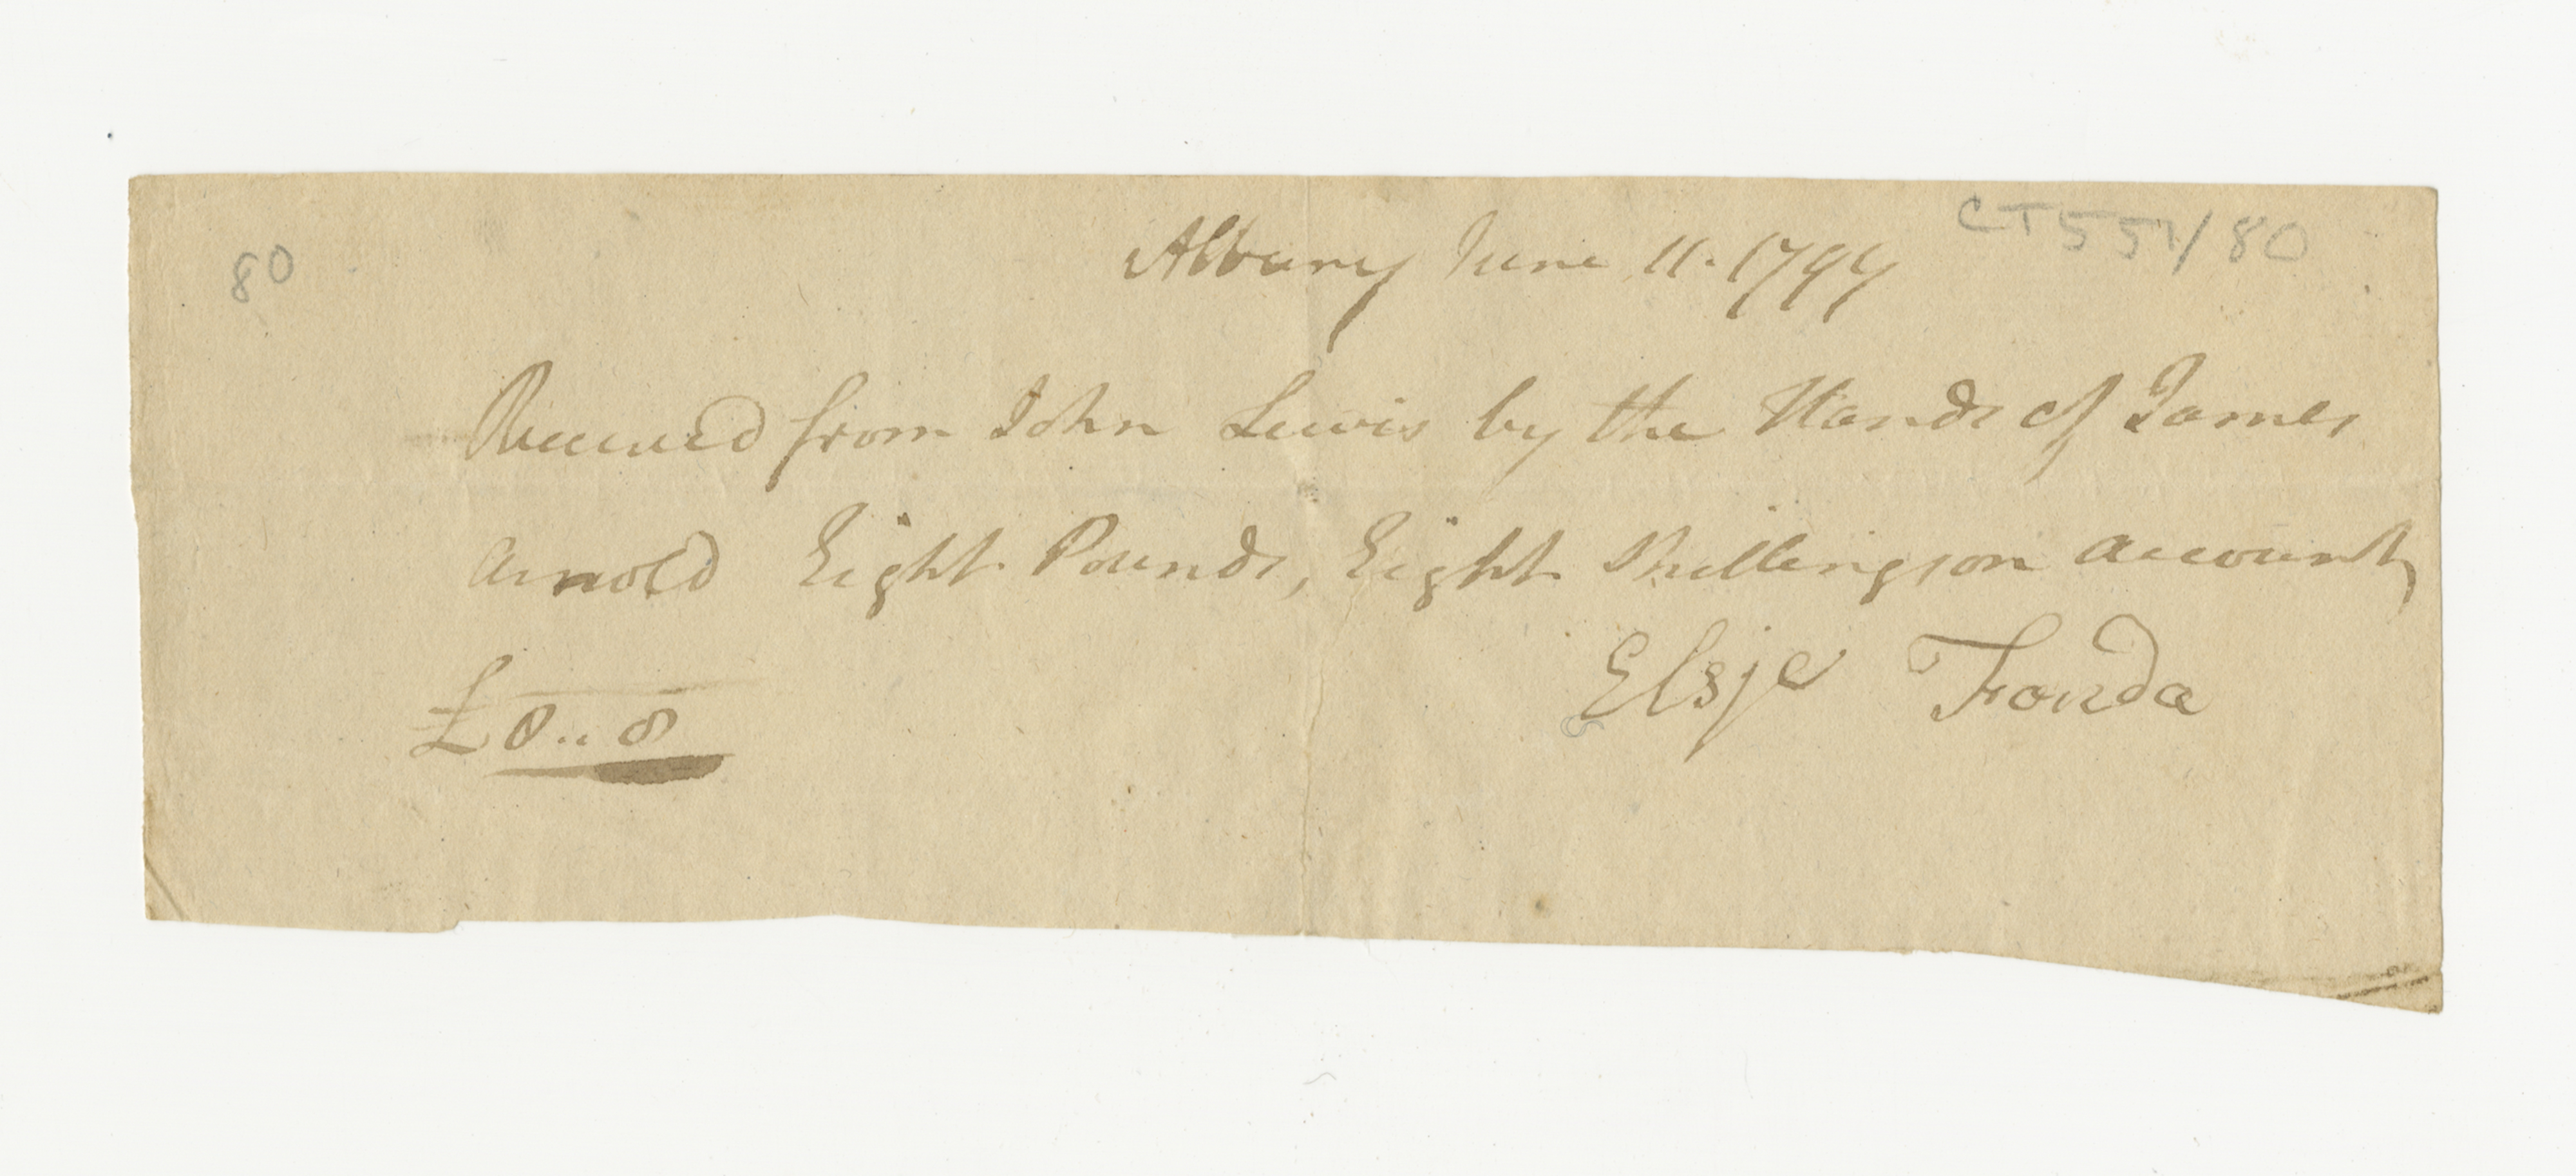 80
CT551/80
Albany June 11. 1794
Received from John Lewis by the Hands of James
Arnold Eight Pounds, Eight Shillings on account,
Elsje Fonda
£8..8